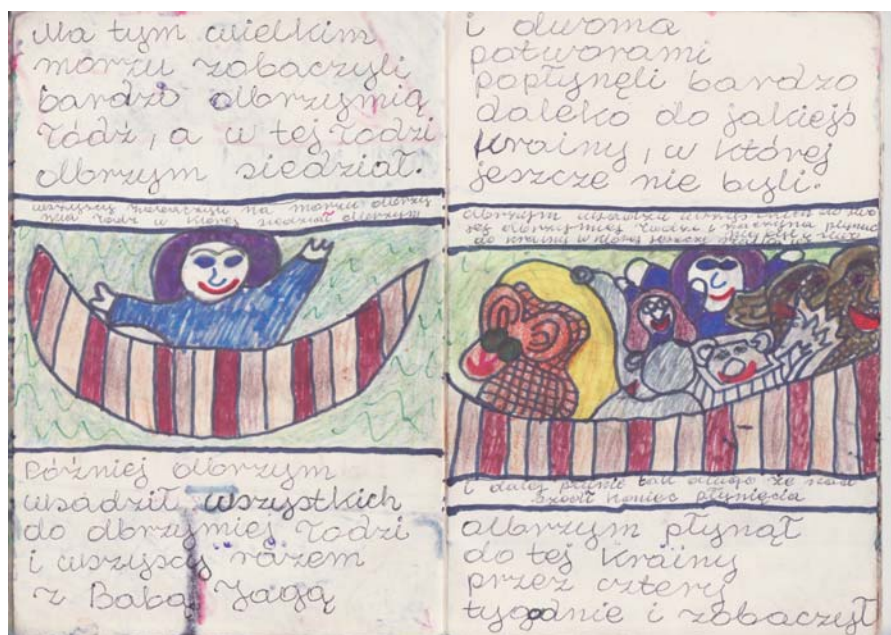 Na tym wielkim
morzu zobaczyli
bardzo olbrzymią
łódź, a w tej łodzi
olbrzym siedział.
wszyscy zobaczyli na morzu olbrzy
mia łódź w której siedział olbrzym
Później olbrzym
wsadził wszystkich
do olbrzymiej łodzi
i wszyscy razem
z Babą Jagą
i dwoma
potworami
popłynęli bardzo
daleko do jakiejś
krainy, w której
jeszcze nie byli.
olbrzym wsadza wszystkich do swo
jej olbrzymiej łodzi i zaczyna płynąć
do krainy w której jeszcze
i dalej płynie tak długo że
koniec płynięcia
olbrzym płynął
do tej krainy
przez cztery
tygodnie i zobaczył